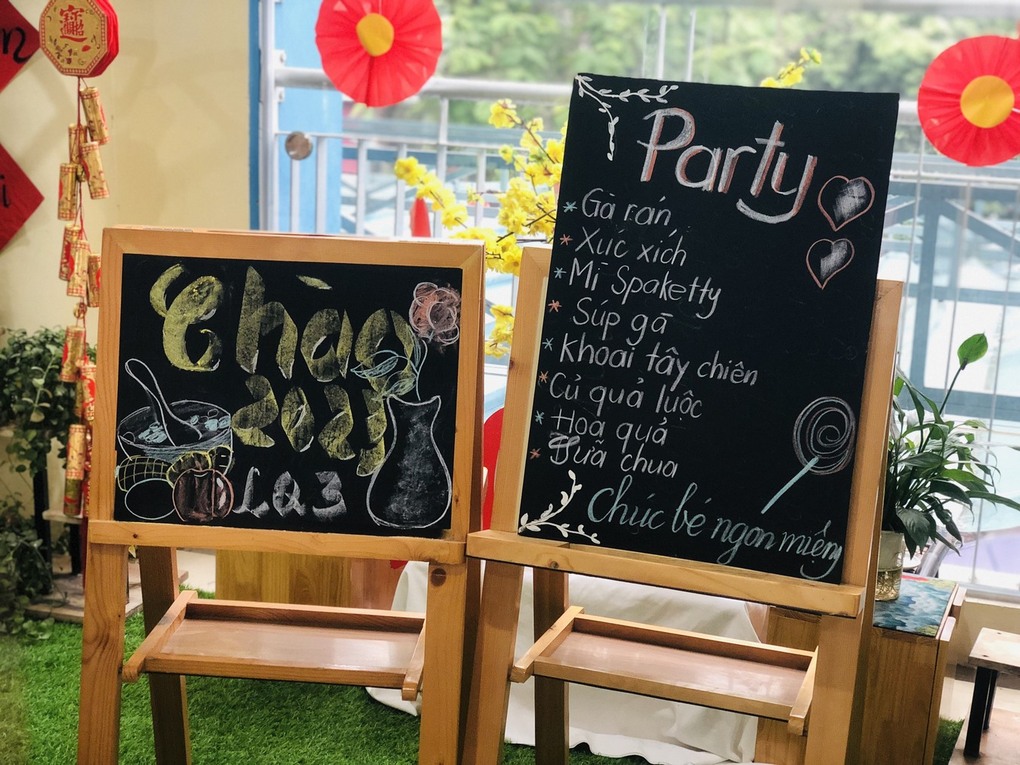 Chào
2021
LQ3
Party
Gà rán
Xúc xích
Mì Spaketty
Súp gà
Khoai tây chiên
Củ quả luộc
Hoa quả
Dưa chua
Chúc bé ngon miệng